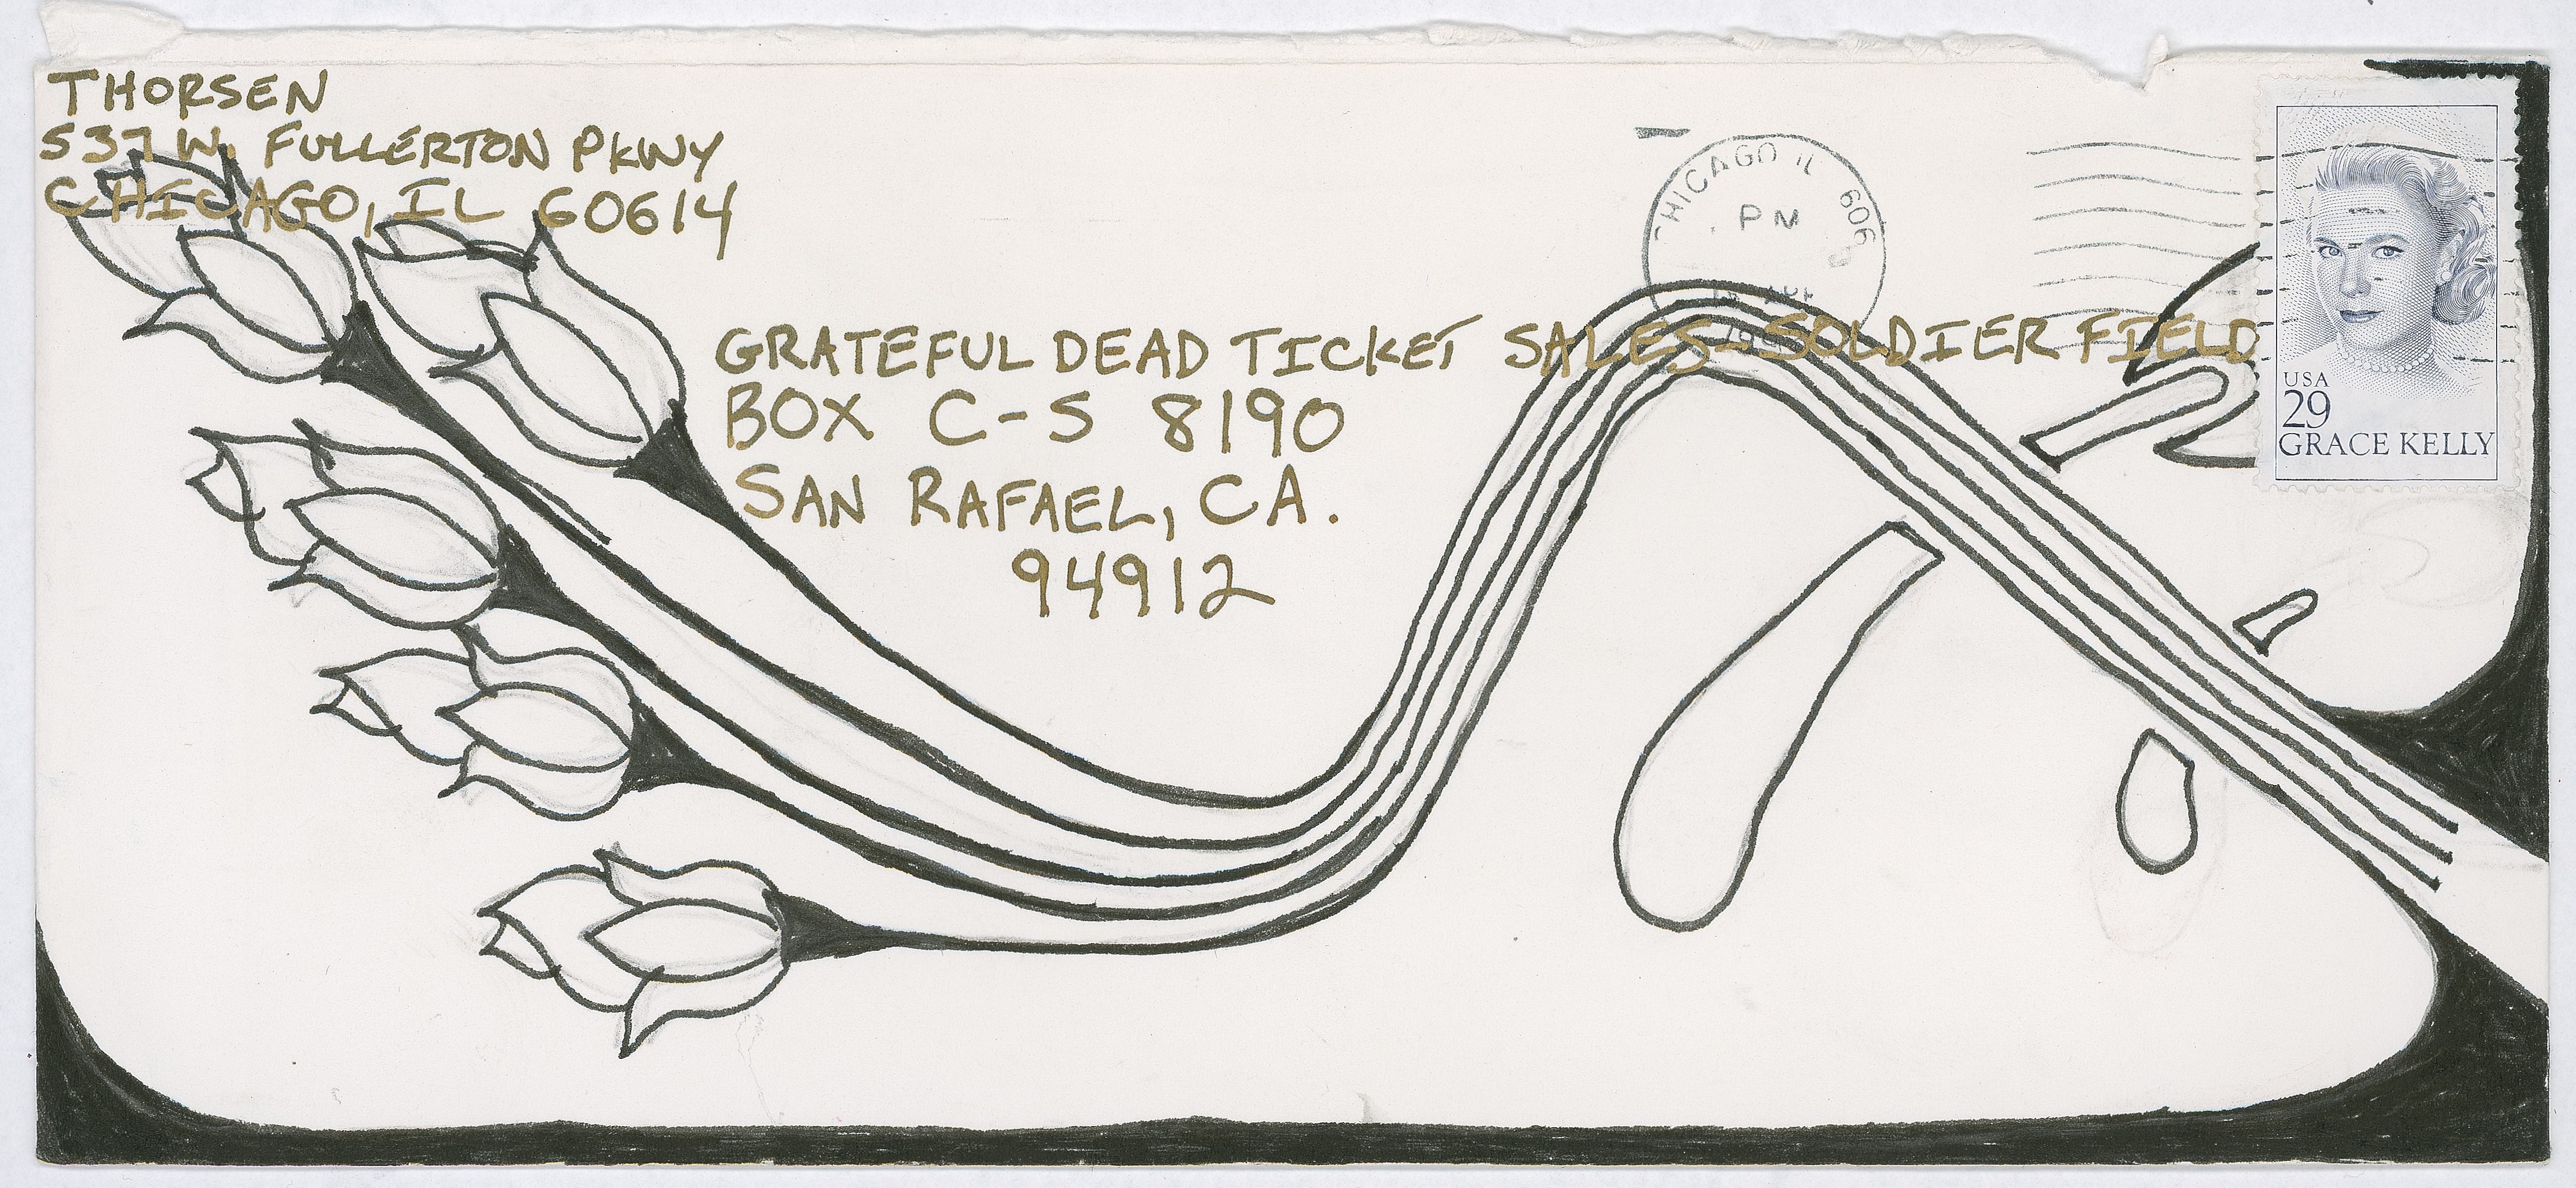 THORSEN
537 W. FULLERTON PKWY
CHICAGO, IL 60614
CHICAGO IL 606
PM
GRATEFUL DEAD TICKET SALES-SOLDIER FIELD
BOX C-S 8190
SAN RAFAEL, CA.
94912
USA
29
GRACE KELLY